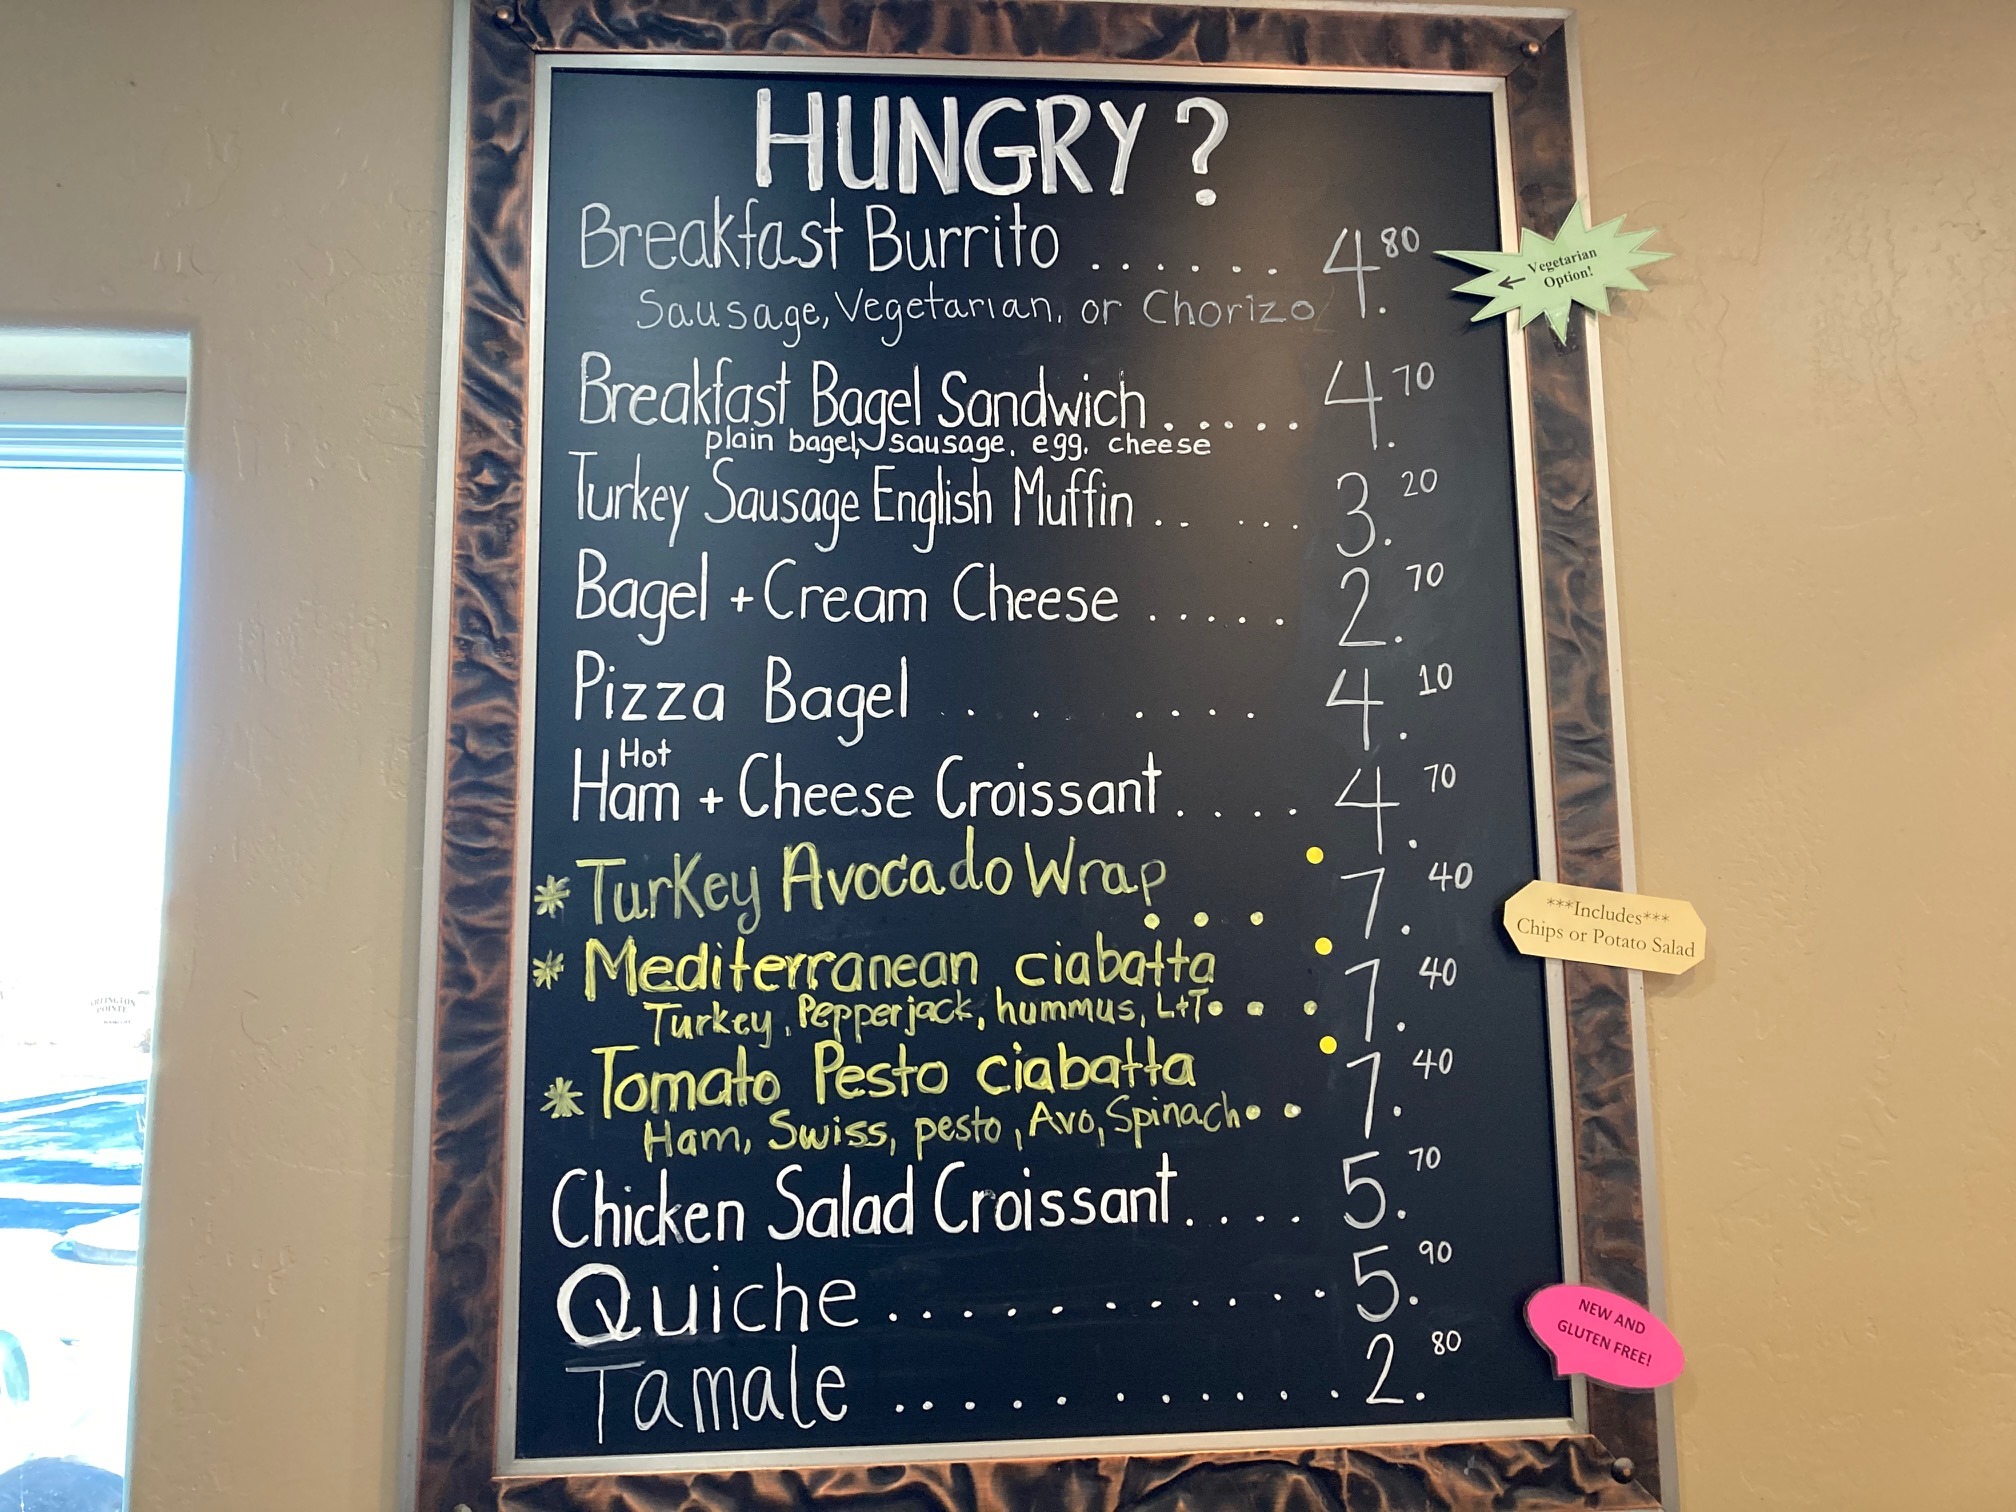 HUNGRY?
Breakfast Burrito ...... 4.80
Sausage, Vegetarian, or Chorizo
← Vegetarian
Option!
Breakfast Bagel Sandwich ..... 4.70
plain bagel, sausage, egg, cheese
Turkey Sausage English Muffin .. ... 3.20
Bagel + Cream Cheese ..... 2.70
Pizza Bagel . . .... 4.10
Hot
Ham + Cheese Croissant .... 4.70
* Turkey Avocado Wrap ... 7.40
***Includes***
Chips or Potato Salad
* Mediterranean ciabatta 7.40
Turkey, Pepperjack, hummus, L+T...
* Tomato Pesto ciabatta 7.40
Ham, Swiss, pesto, Avo, Spinach..
Chicken Salad Croissant .... 5.70
Quiche ............ 5.90
NEW AND
GLUTEN FREE!
Tamale ............ 2.80
ARLINGTON
POINTE